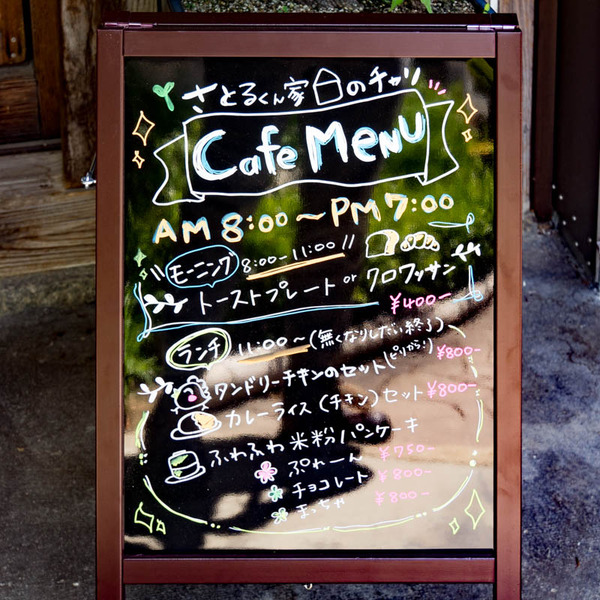 さとるくん家のチャリ
Cafe MENU
AM 8:00〜PM 7:00
モーニング 8:00-11:00!!
トーストプレート or クロワッサン
¥400-
ランチ 11:00〜(無くなりしだい終了)
タンドリーチキンのセット(ピリから!) ¥800-
カレーライス (チキン) セット ¥800-
ふわふわ米粉パンケーキ
ぷれーん ¥750-
チョコレート ¥800-
まっちゃ ¥800-